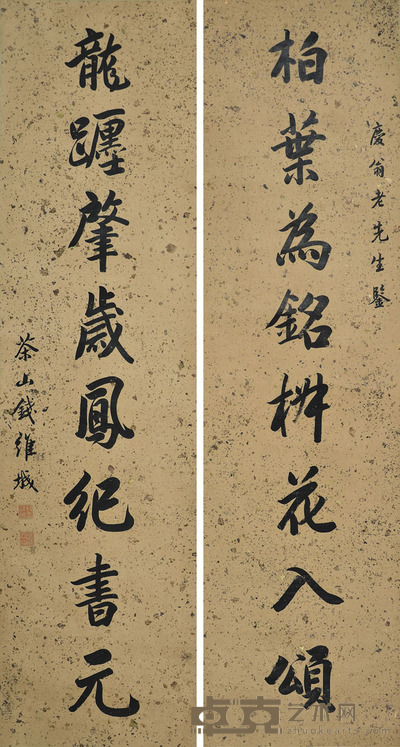 慶翁老先生鑒
柏葉為銘椒花入頌
龍躔肇歲鳳紀書元
茶山錢維城
卓克艺术网